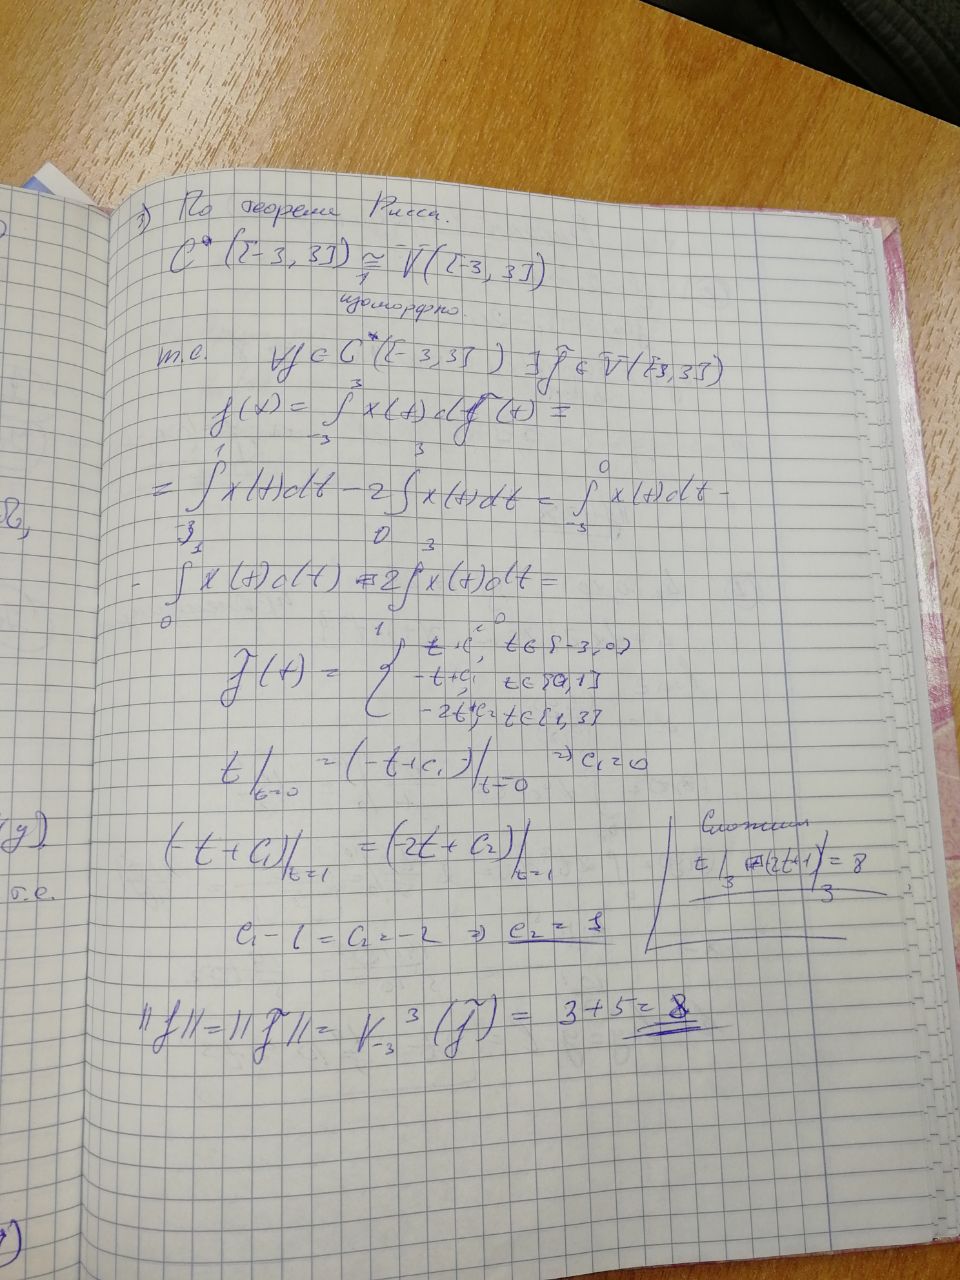 1) По теореме Рисса.
C* ([-3, 3]) ≅ V([-3, 3])
изоморфно.
т.е. ∀f ∈ C*([-3, 3]) ∃ f̃ ∈ V([-3, 3])
f(x) = ∫₋₃³ x(t) df̃(t) =
= ∫₋₃¹ x(t)dt - 2∫₀³ x(t)dt = ∫₋₃⁰ x(t)dt -
- ∫₀¹ x(t)dt - 2∫₁³ x(t)dt =
f̃(t) = { t + c, t ∈ [-3, 0)
-t + c₁, t ∈ [0, 1]
-2t + c₂, t ∈ [1, 3]
t|t=0 = (-t + c₁)|t=0 => c₁ = 0
(-t + c₁)|t=1 = (-2t + c₂)|t=1
c₁ - 1 = c₂ - 2 => c₂ = 1
Сложим
t|₃ (2t+1)|₃ = 8
||f|| = ||f̃|| = V₋₃³ (f̃) = 3 + 5 = 8
(y)
т.е.